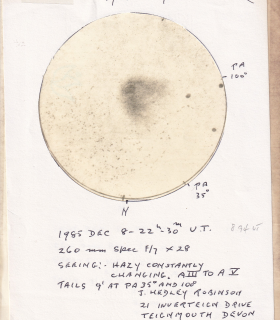 PA
100°
PA
35°
N
1985 DEC 8 - 22ʰ-30ᵐ U.T.
260 mm SPEC F/7 X 28
SEEING:- HAZY CONSTANTLY
CHANGING, A III TO A V
TAILS 9' AT PA 35° AND 100°
J. HEDLEY ROBINSON
21 INVERTEIGN DRIVE
TEIGNMOUTH DEVON